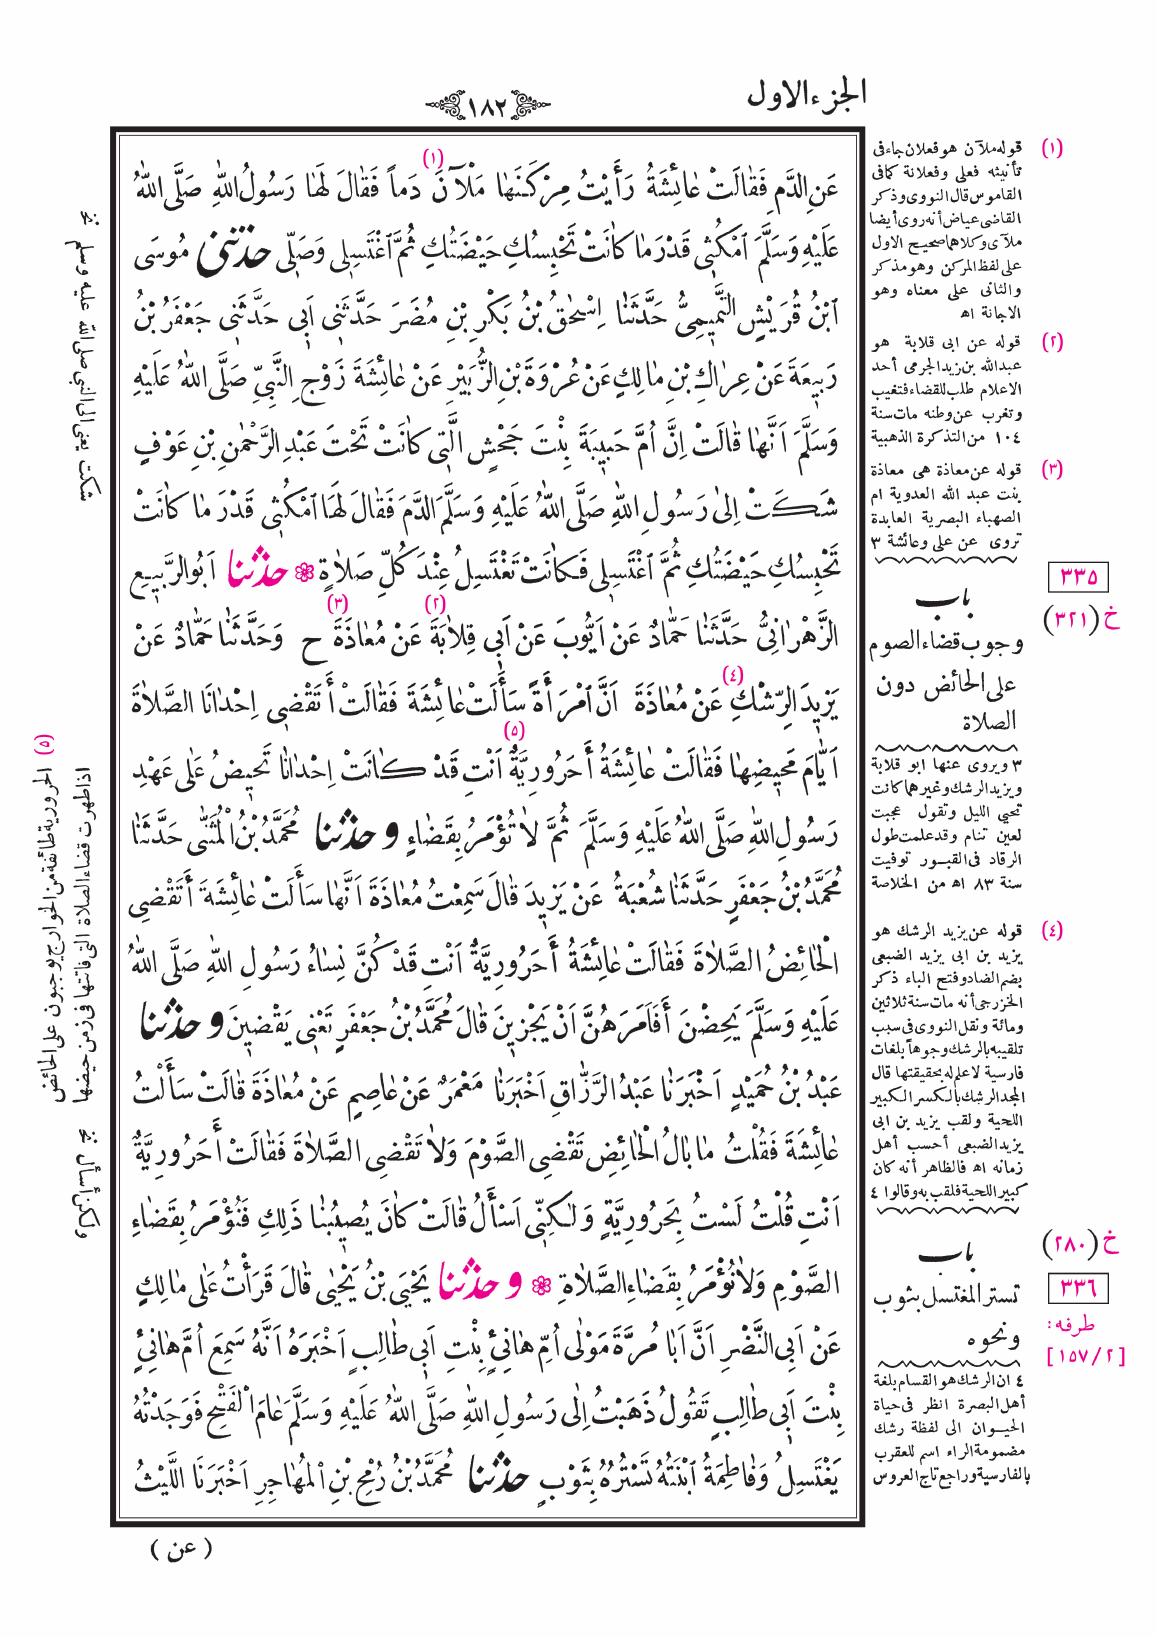 الجزء الاول
١٨٢
عَنِ الدَّمِ فَقَالَتْ عَائِشَةُ رَأَيْتُ مِرْكَنَهَا مَلْآنَ (١) دَماً فَقَالَ لَهَا رَسُولُ اللهِ صَلَّى اللهُ
عَلَيْهِ وَسَلَّمَ اَمْكُثِى قَدْرَ مَا كَانَتْ تَحْبِسُكِ حَيْضَتُكِ ثُمَّ اَغْتَسِلِى وَصَلِّى حَدَّثَنِى مُوسَى
ابْنُ قُرَيْشٍ التَّمِيمِىُّ حَدَّثَنَا اِسْحٰقُ بْنُ بَكْرِ بْنِ مُضَرَ حَدَّثَنِى اَبِى حَدَّثَنِى جَعْفَرُ بْنُ
رَبِيعَةَ عَنْ عِرَاكِ بْنِ مَالِكٍ عَنْ عُرْوَةَ بْنِ الزُّبَيْرِ عَنْ عَائِشَةَ زَوْجِ النَّبِيِّ صَلَّى اللهُ عَلَيْهِ
وَسَلَّمَ اَنَّهَا قَالَتْ اِنَّ اُمَّ حَبِيبَةَ بِنْتَ جَحْشٍ الَّتِى كَانَتْ تَحْتَ عَبْدِ الرَّحْمٰنِ بْنِ عَوْفٍ
شَكَتْ اِلَى رَسُولِ اللهِ صَلَّى اللهُ عَلَيْهِ وَسَلَّمَ الدَّمَ فَقَالَ لَهَا اَمْكُثِى قَدْرَ مَا كَانَتْ
تَحْبِسُكِ حَيْضَتُكِ ثُمَّ اَغْتَسِلِى فَكَانَتْ تَغْتَسِلُ عِنْدَ كُلِّ صَلَاةٍ حَدَّثَنَا اَبُو الرَّبِيعِ
الزَّهْرَانِىُّ حَدَّثَنَا حَمَّادٌ عَنْ اَيُّوبَ عَنْ اَبِى قِلَابَةَ (٢) عَنْ مُعَاذَةَ (٣) ح وَحَدَّثَنَا حَمَّادٌ عَنْ
يَزِيدَ الرِّشْكِ (٤) عَنْ مُعَاذَةَ اَنَّ اَمْرَأَةً سَأَلَتْ عَائِشَةَ فَقَالَتْ أَتَقْضِى اِحْدَانَا الصَّلَاةَ
اَيَّامَ مَحِيضِهَا فَقَالَتْ عَائِشَةُ أَحَرُورِيَّةٌ (٥) اَنْتِ قَدْ كَانَتْ اِحْدَانَا تَحِيضُ عَلَى عَهْدِ
رَسُولِ اللهِ صَلَّى اللهُ عَلَيْهِ وَسَلَّمَ ثُمَّ لَا تُؤْمَرُ بِقَضَاءٍ وحَدَّثَنَا مُحَمَّدُ بْنُ الْمُثَنَّى حَدَّثَنَا
مُحَمَّدُ بْنُ جَعْفَرٍ حَدَّثَنَا شُعْبَةُ عَنْ يَزِيدَ قَالَ سَمِعْتُ مُعَاذَةَ اَنَّهَا سَأَلَتْ عَائِشَةَ أَتَقْضِى
الْحَائِضُ الصَّلَاةَ فَقَالَتْ عَائِشَةُ أَحَرُورِيَّةٌ اَنْتِ قَدْ كُنَّ نِسَاءُ رَسُولِ اللهِ صَلَّى اللهُ
عَلَيْهِ وَسَلَّمَ يَحِضْنَ أَفَاَمَرَهُنَّ اَنْ يَجْزِينَ قَالَ مُحَمَّدُ بْنُ جَعْفَرٍ تَعْنِى يَقْضِينَ وحَدَّثَنَا
عَبْدُ بْنُ حُمَيْدٍ اَخْبَرَنَا عَبْدُ الرَّزَّاقِ اَخْبَرَنَا مَعْمَرٌ عَنْ عَاصِمٍ عَنْ مُعَاذَةَ قَالَتْ سَأَلْتُ
عَائِشَةَ فَقُلْتُ مَا بَالُ الْحَائِضِ تَقْضِى الصَّوْمَ وَلَا تَقْضِى الصَّلَاةَ فَقَالَتْ أَحَرُورِيَّةٌ
اَنْتِ قُلْتُ لَسْتُ بِحَرُورِيَّةٍ وَلَكِنِّى اَسْأَلُ قَالَتْ كَانَ يُصِيبُنَا ذَلِكِ فَنُؤْمَرُ بِقَضَاءِ
الصَّوْمِ وَلَا نُؤْمَرُ بِقَضَاءِ الصَّلَاةِ وحَدَّثَنَا يَحْيَى بْنُ يَحْيَى قَالَ قَرَأْتُ عَلَى مَالِكٍ
عَنْ اَبِى النَّضْرِ اَنَّ اَبَا مُرَّةَ مَوْلَى اُمِّ هَانِئٍ بِنْتِ اَبِى طَالِبٍ اَخْبَرَهُ اَنَّهُ سَمِعَ اُمَّ هَانِئٍ
بِنْتَ اَبِى طَالِبٍ تَقُولُ ذَهَبْتُ اِلَى رَسُولِ اللهِ صَلَّى اللهُ عَلَيْهِ وَسَلَّمَ عَامَ الْفَتْحِ فَوَجَدْتُهُ
يَغْتَسِلُ وَفَاطِمَةُ ابْنَتُهُ تَسْتُرُهُ بِثَوْبٍ حَدَّثَنَا مُحَمَّدُ بْنُ رُمْحِ بْنِ الْمُهَاجِرِ اَخْبَرَنَا اللَّيْثُ
( عن )
(١) قوله ملآن هو فعلان جاء فى
تأنيثه فعلى وفعلانة كما فى
القاموس قال النووى وذكر
القاضى عياض أنه روى أيضا
ملآى وكلاهما صحيح الاول
على لفظ المركن وهو مذكر
والثانى على معناه وهو
الاجانة اه
(٢) قوله عن ابى قلابة هو
عبدالله بن زيد الجرمى أحد
الاعلام طلب للقضاء فتغيب
وتغرب عن وطنه مات سنة
١٠٤ من التذكرة الذهبية
(٣) قوله عن معاذة هى معاذة
بنت عبد الله العدوية ام
الصهباء البصرية العابدة
تروى عن على وعائشة ٣
٣٣٥
خ (٣٢١)
باب
وجوب قضاء الصوم
على الحائض دون
الصلاة
٣ ويروى عنها ابو قلابة
ويزيد الرشك وغيرهما كانت
تحيي الليل وتقول عجبت
لعين تنام وقد علمت طول
الرقاد فى القبور توفيت
سنة ٨٣ اه من الخلاصة
(٤) قوله عن يزيد الرشك هو
يزيد بن ابى يزيد الضبعى
بضم الضاد وفتح الباء ذكر
الخزرجى أنه مات سنة ثلاثين
ومائة ونقل النووى فى سبب
تلقيبه بالرشك وجوهاً بلغات
فارسية لا علم له بحقيقتها قال
المجد الرشك بالكسر الكبير
اللحية ولقب يزيد بن ابى
يزيد الضبعى أحسب أهل
زمانه اه فالظاهر أنه كان
كبير اللحية فلقب به وقالوا ٤
خ (٢٨٠)
باب
تستر المغتسل بثوب
ونحوه
٣٣٦
طرفه:
[١٥٧/٢]
٤ ان الرشك هو القسام بلغة
أهل البصرة انظر فى حياة
الحيوان الى لفظة رشك
مضمومة الراء اسم للعقرب
بالفارسية وراجع تاج العروس
شكت يعنى الى النبى صلى الله عليه وسلم نخ
(٥) الحرورية طائفة من الخوارج يوجبون على الحائض
اذا طهرت قضاء الصلاة التى فاتتها فى زمن حيضها
ولكن أسأل نخ